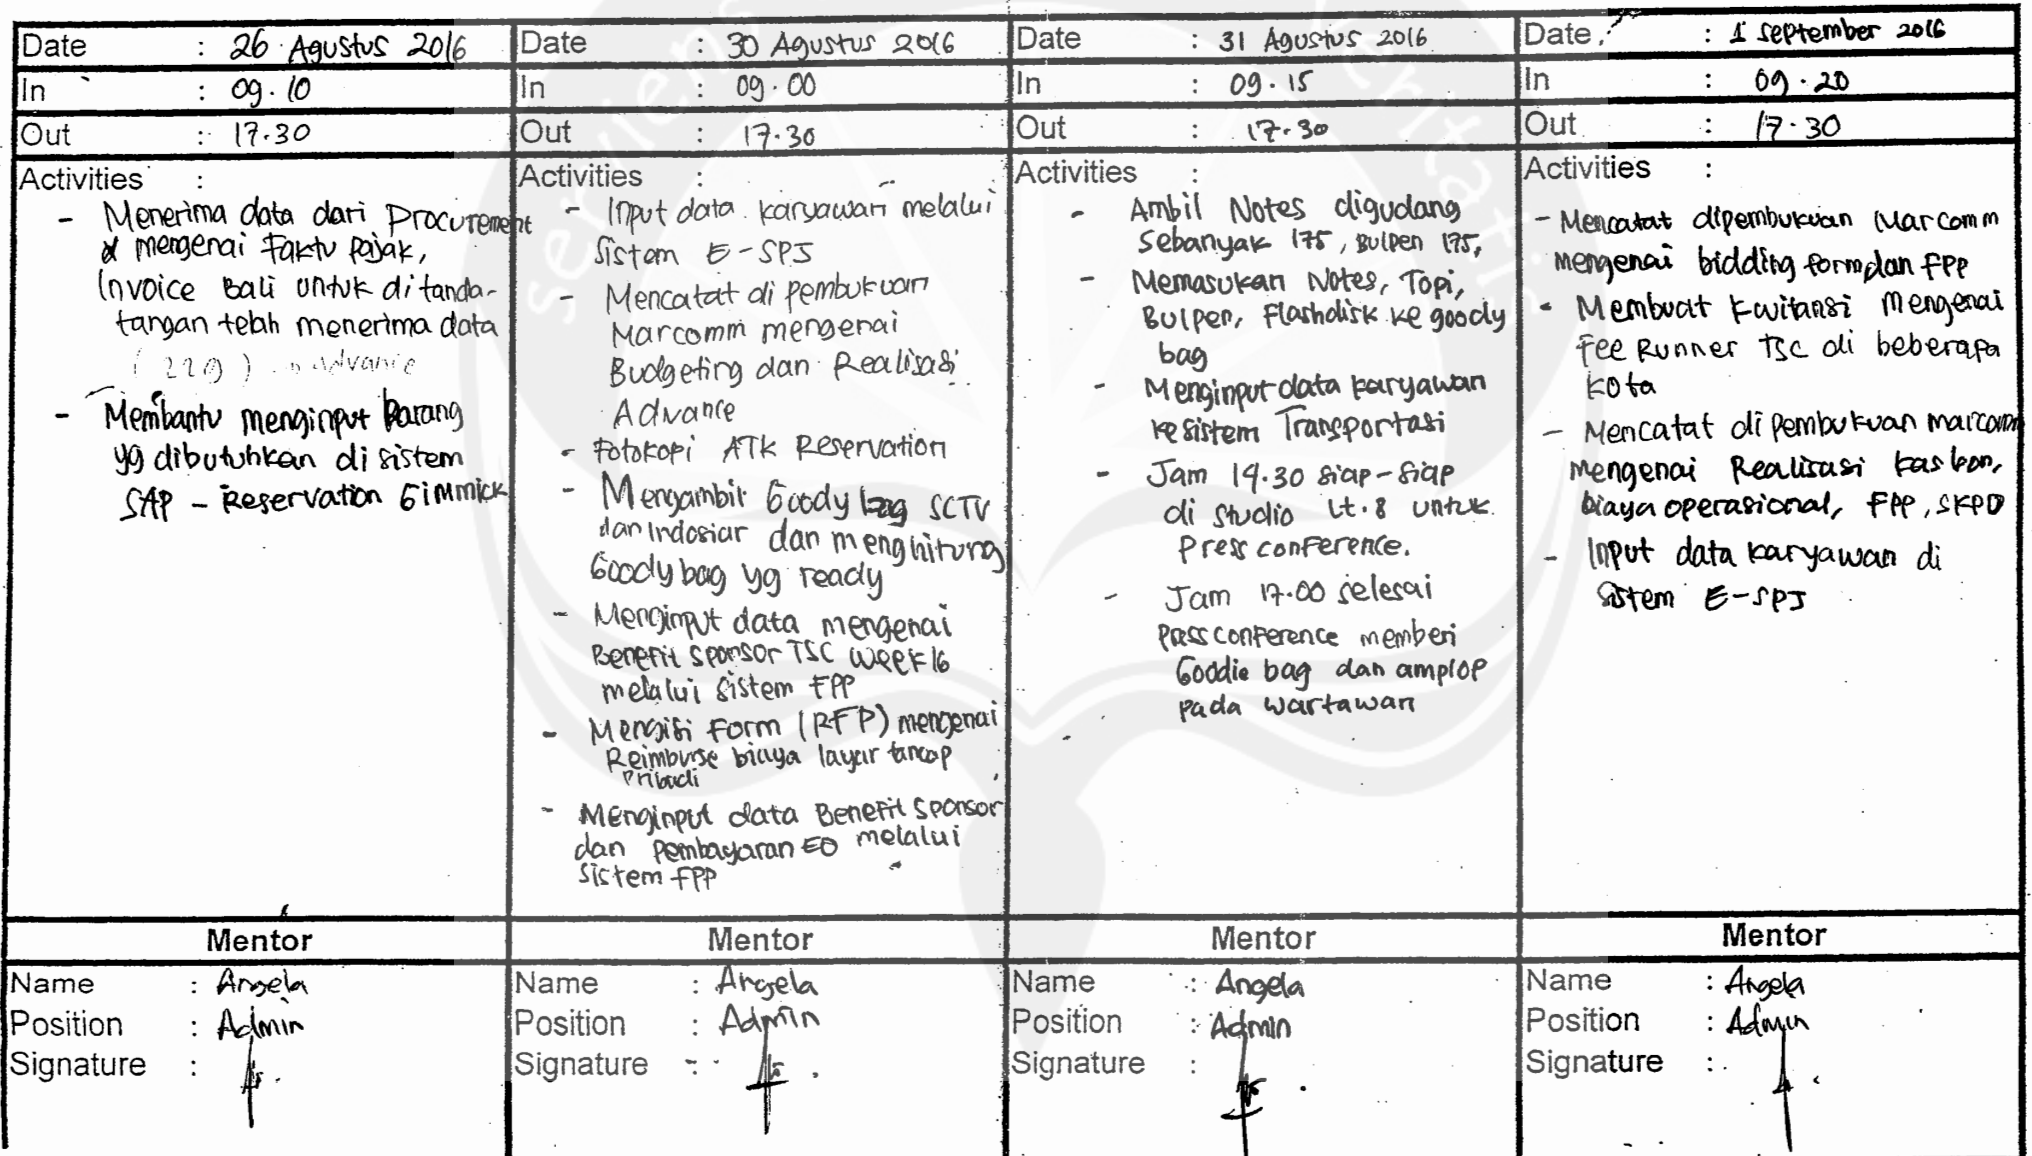 Date : 26 Agustus 2016
In : 09.10
Out : 17.30
Activities :
- Menerima data dari Procurement
& mengenai Faktu Pajak,
Invoice Bali untuk ditanda-
tangan telah menerima data
Advance
- Membantu menginput Barang
yg dibutuhkan di sistem
SAP - Reservation Gimmick
Mentor
Name : Angela
Position : Admin
Signature :
Date : 30 Agustus 2016
In : 09.00
Out : 17.30
Activities :
- Input data karyawan melalui
Sistem E-SPJ
- Mencatat di pembukuan
Marcomm mengenai
Budgeting dan Realisasi
Advance
- Fotokopi ATK Reservation
- Mengambil Goody bag SCTV
dan Indosiar dan menghitung
Goody bag yg ready
- Menginput data mengenai
Benefit sponsor TSC week 16
melalui sistem FPP
- Mengisi Form (RFP) mengenai
Reimburse biaya layar tancap
Pribadi
- Menginput data Benefit Sponsor
dan Pembayaran EO melalui
Sistem FPP
Mentor
Name : Angela
Position : Admin
Signature :
Date : 31 Agustus 2016
In : 09.15
Out : 17.30
Activities :
- Ambil Notes digudang
Sebanyak 175, Bulpen 175,
- Memasukan Notes, Topi,
Bulpen, Flashdisk ke goody
bag
- Menginput data karyawan
ke sistem Transportasi
- Jam 14.30 siap-siap
di Studio Lt.8 untuk
Press conference.
- Jam 17.00 selesai
Press conference memberi
Goodie bag dan amplop
pada wartawan
Mentor
Name : Angela
Position : Admin
Signature :
Date : 1 September 2016
In : 09.20
Out : 17.30
Activities :
- Mencatat dipembukuan Marcomm
mengenai bidding form dan FPP
- Membuat Kwitansi Mengenai
Fee Runner TSC di beberapa
Kota
- Mencatat di pembukuan marcomm
mengenai Realisasi kasbon,
biaya operasional, FPP, SKPD
- Input data karyawan di
Sistem E-SPJ
Mentor
Name : Angela
Position : Admin
Signature :